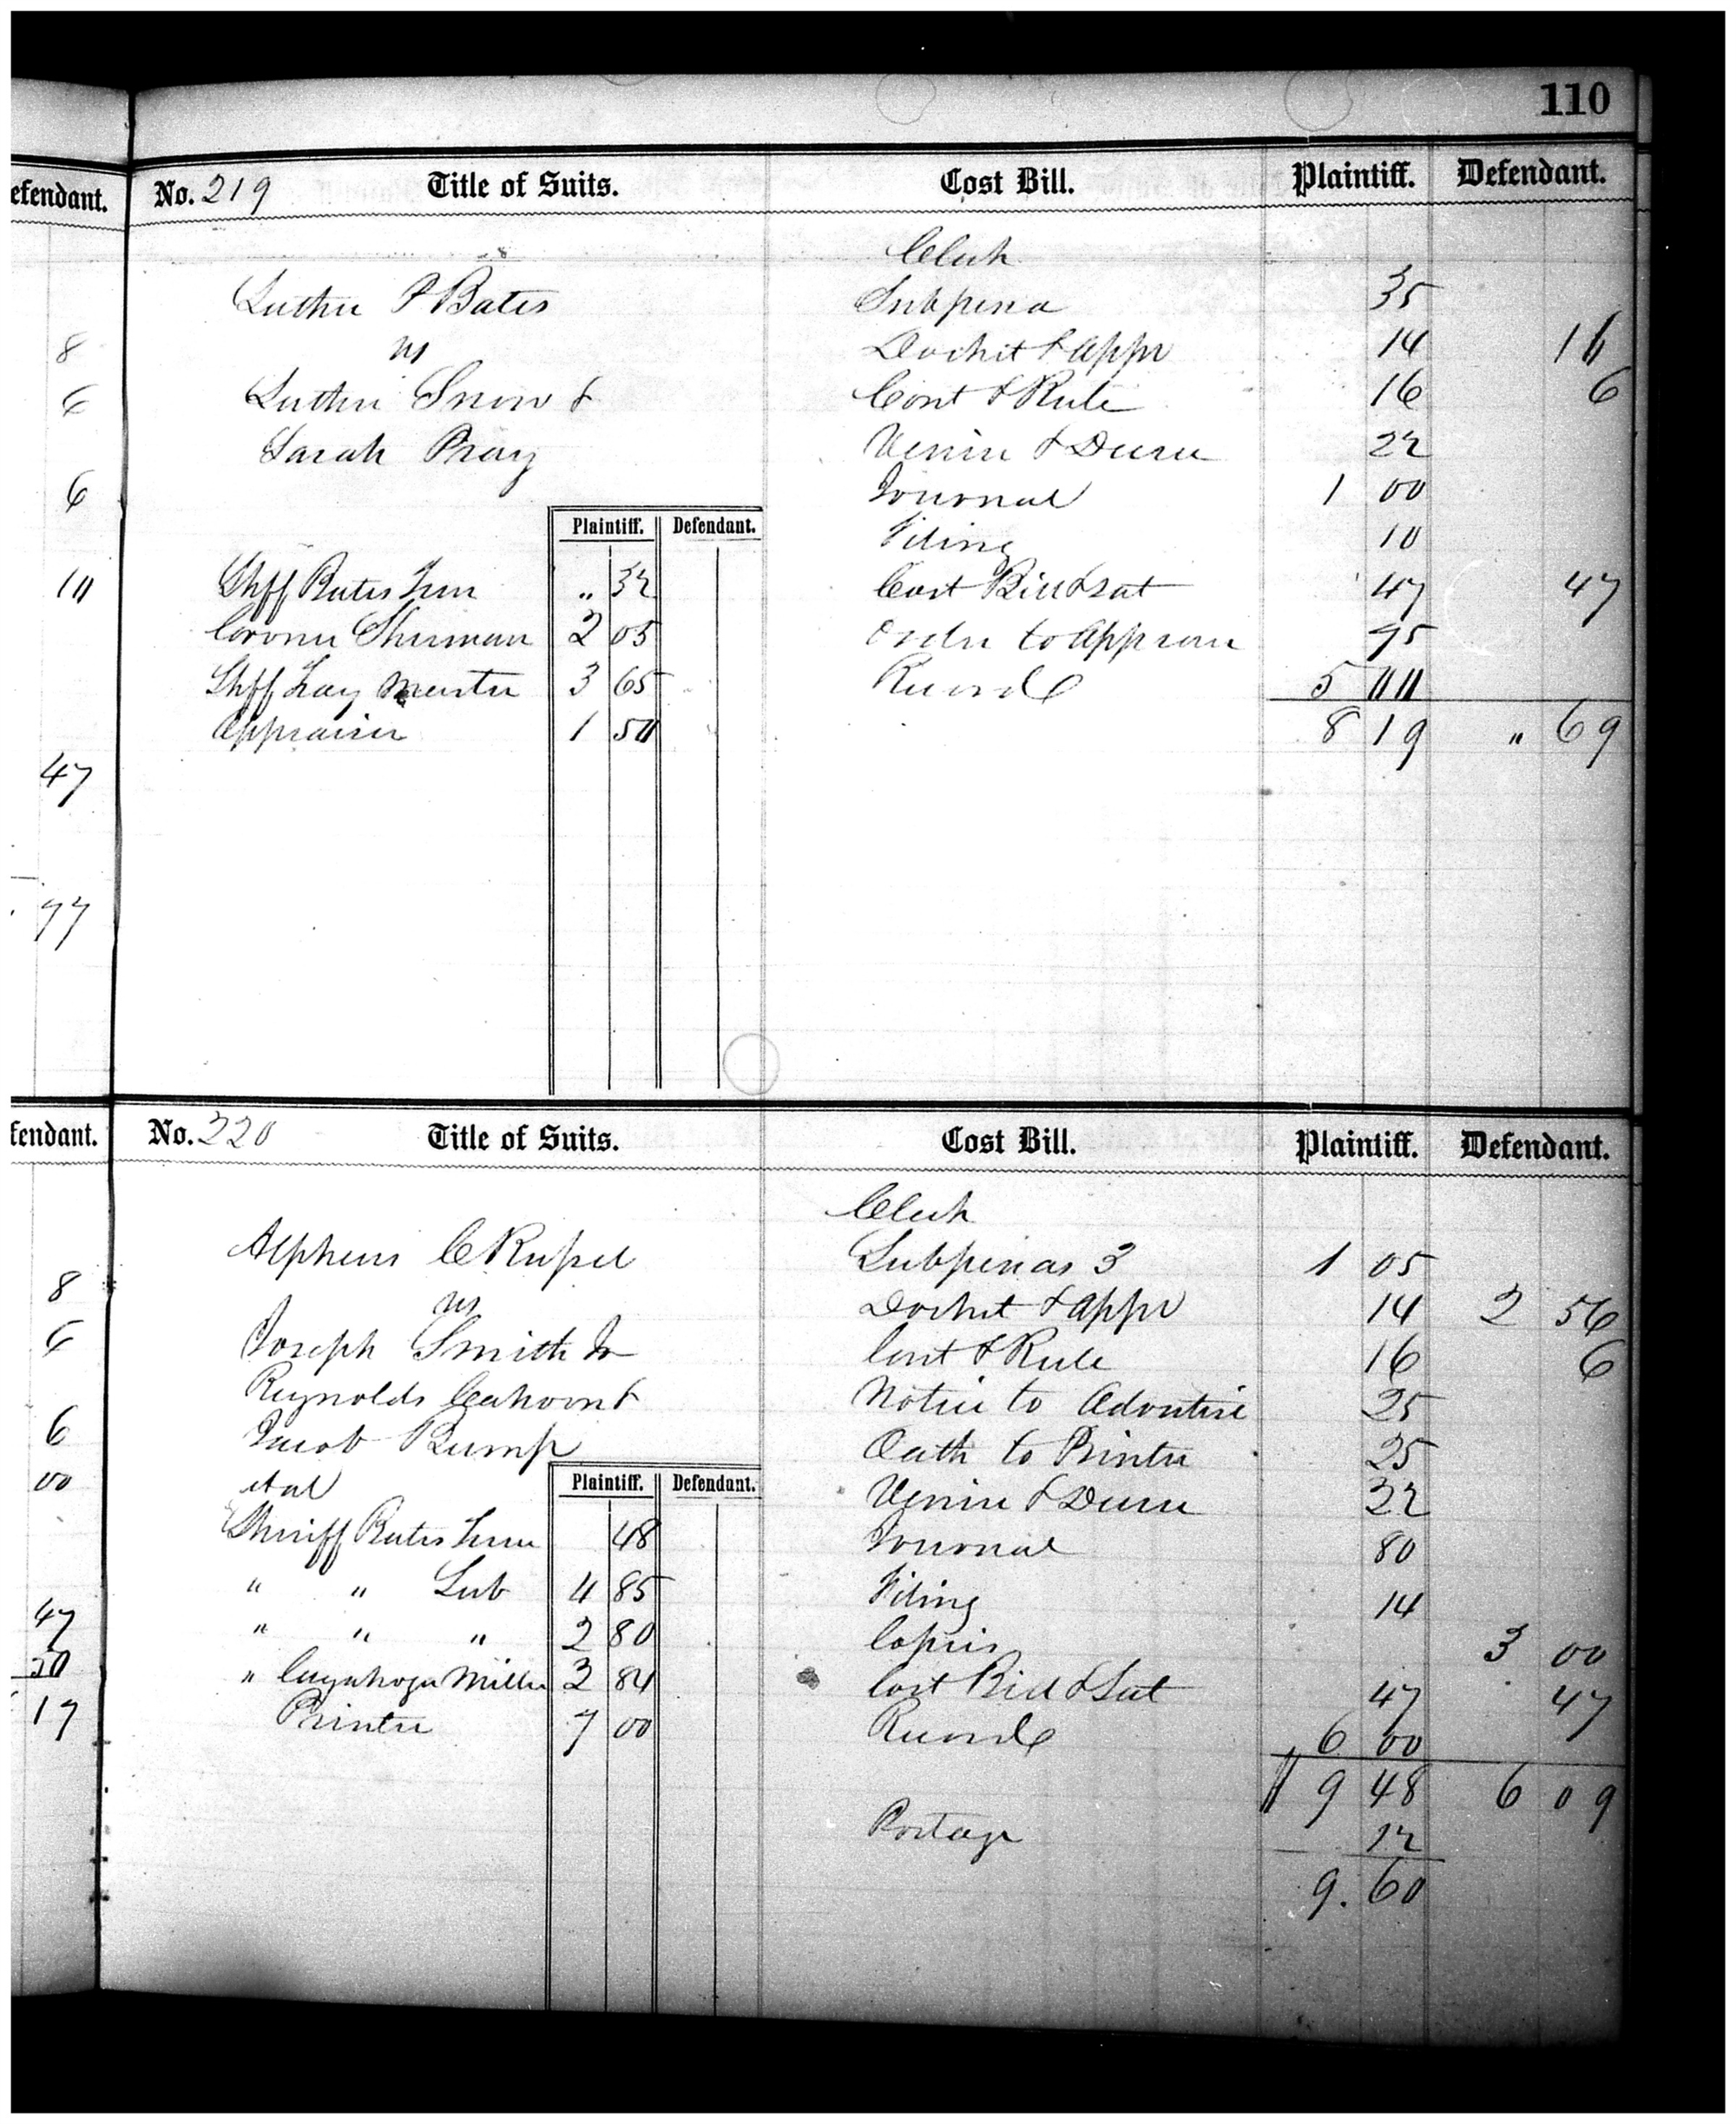 110
efendant.
8
6
6
10
47
77
No. 219 Title of Suits. Cost Bill. Plaintiff. Defendant.
Clerk
Luther P Bates Subpena 35
vs Docket & Appr 14 16
Luther Snow & Cont & Rule 16 6
Sarah Pray Venire & Decree 22
Journal 1 00
Plaintiff. Defendant.
Filing 10
Shff Bates " 32 Cost Bill & Sat 47 47
Coroner Sherman 2 05 Order to Appraise 75
Shff Lay 3 65 Record 5 00
Appraiser 1 50 8 19 " 69
fendant.
8
6
6
00
47
50
17
No. 220 Title of Suits. Cost Bill. Plaintiff. Defendant.
Clerk
Alpheus C Russel Subpenas 3 1 05
vs Docket & Appr 14 2 56
Joseph Smith Jr Cont & Rule 16 6
Reynolds Cahoon & Notice to Advertise 25
Jacob Bump Oath to Printer 25
et al Plaintiff. Defendant. Venire & Decree 22
Sheriff Bates 48 Journal 80
" " Sub 4 85 Filing 14
" " " 2 80 Copies 3 00
" Cuyahoga Miller 2 84 Cost Bill & Sat 47 47
Printer 7 00 Record 6 00
9 48 6 09
Postage 12
9.60